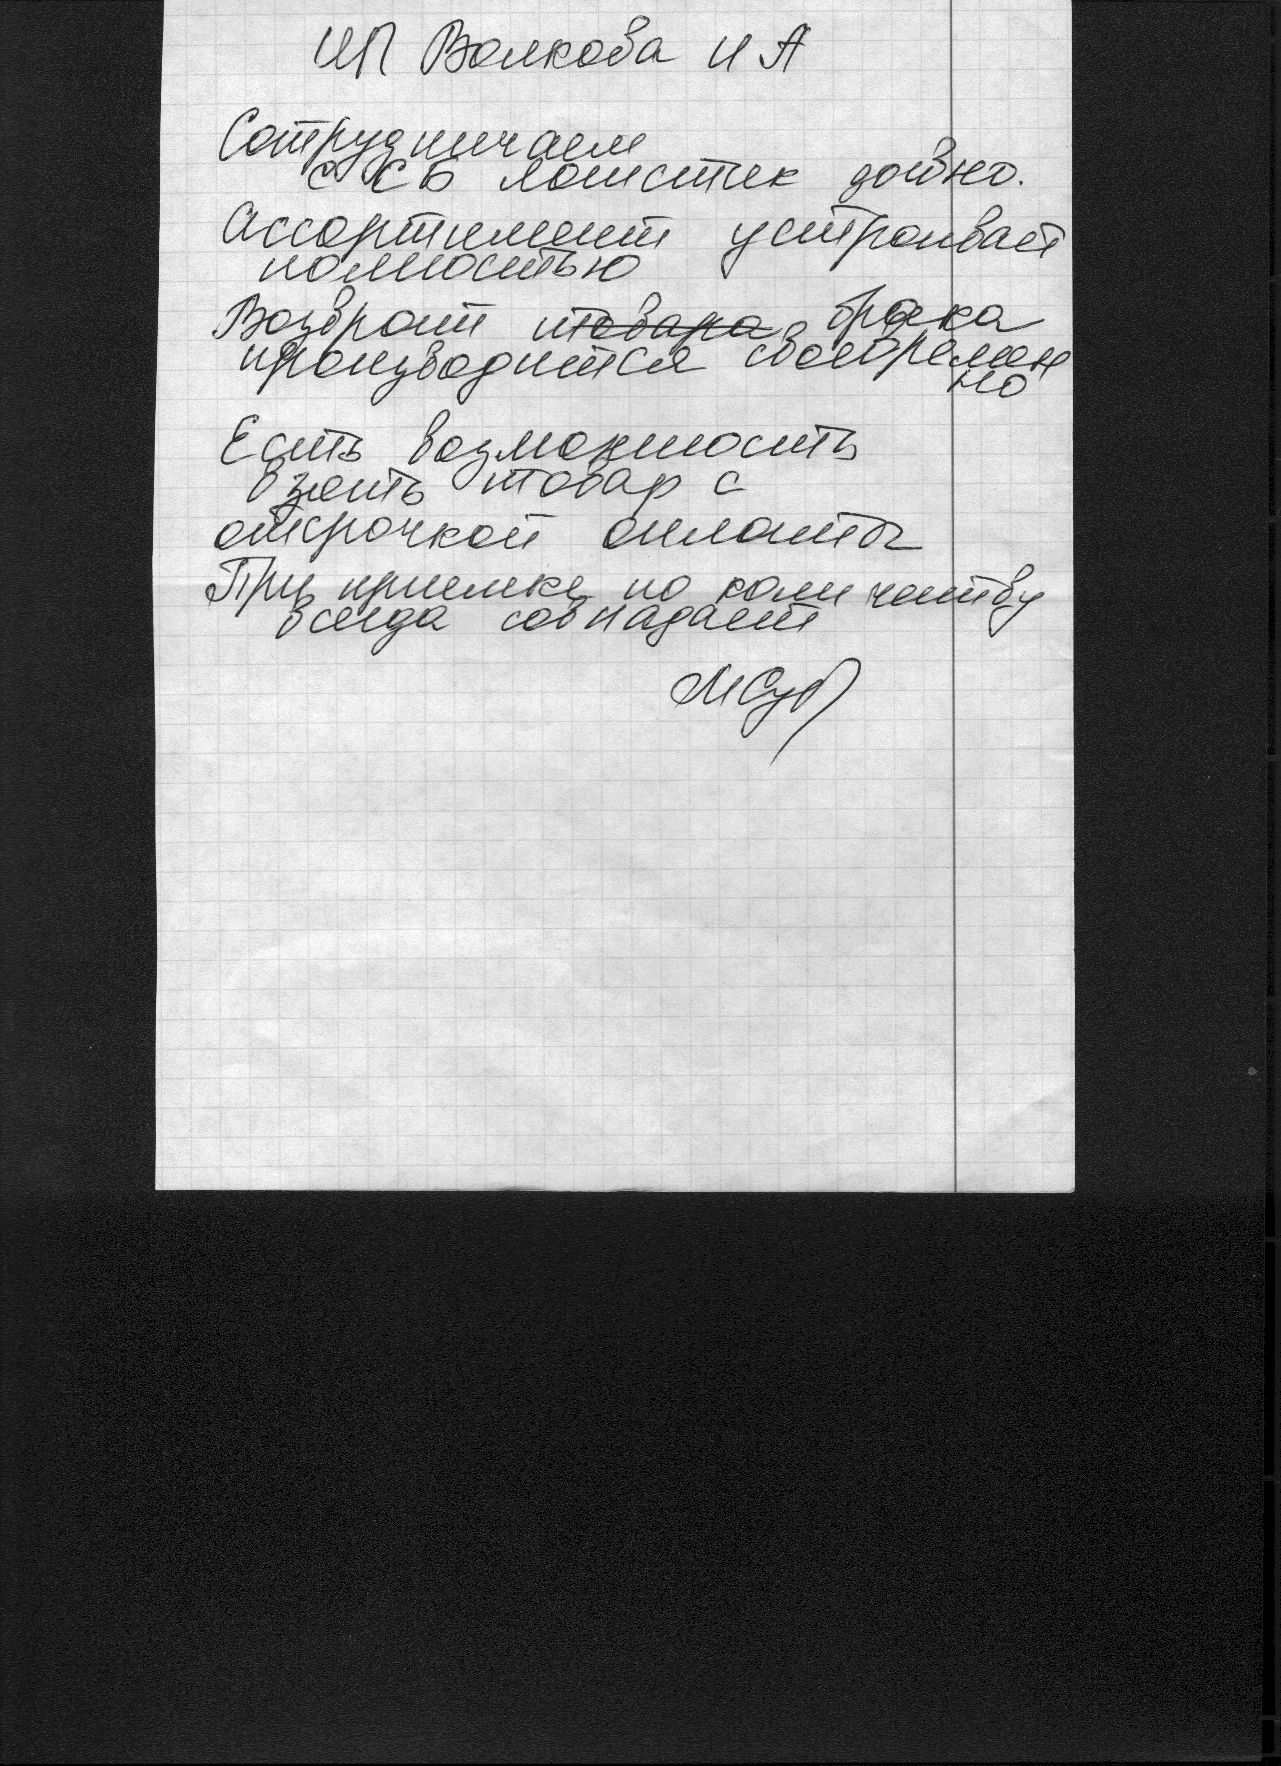 ИП Волкова И А
Сотрудничаем
с СБ логистик давно.
Ассортимент устраивает
полностью
Возврат товара брака
производится своевремен
но
Есть возможность
взять товар с
отсрочкой оплаты
При приемке по количеству
всегда совпадает